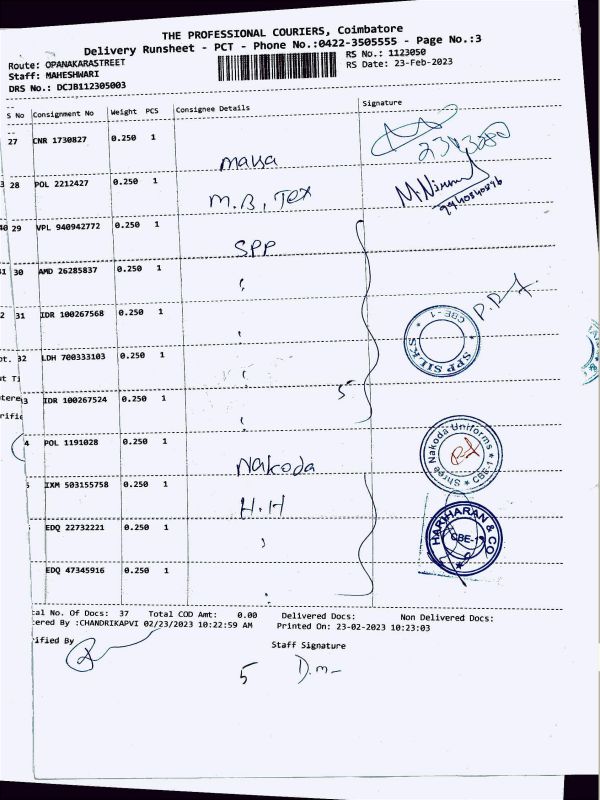 THE PROFESSIONAL COURIERS, Coimbatore
Delivery Runsheet - PCT - Phone No.:0422-3505555 - Page No.:3
Route: OPANAKARASTREET
RS No.: 1123050
Staff: MAHESHWARI
RS Date: 23-Feb-2023
DRS No.: DCJB112305003
S No Consignment No Weight PCS Consignee Details Signature
27 CNR 1730827 0.250 1
28 POL 2212427 0.250 1 M.B, Tex
29 VPL 940942772 0.250 1 SPP
30 AMD 26285837 0.250 1
31 IDR 100267568 0.250 1
SPP SILKS * CBE-1 *
32 LDH 700333103 0.250 1
5
IDR 100267524 0.250 1
POL 1191028 0.250 1 Nakoda
Shree Nakoda Uniforms * CBE-1 *
IXM 503155758 0.250 1 H.H
EDQ 22732221 0.250 1
HARIHARAN & CO CBE-1
EDQ 47345916 0.250 1
No. Of Docs: 37 Total COD Amt: 0.00 Delivered Docs: Non Delivered Docs:
By :CHANDRIKAPVI 02/23/2023 10:22:59 AM Printed On: 23-02-2023 10:23:03
By
Staff Signature
5 D.m